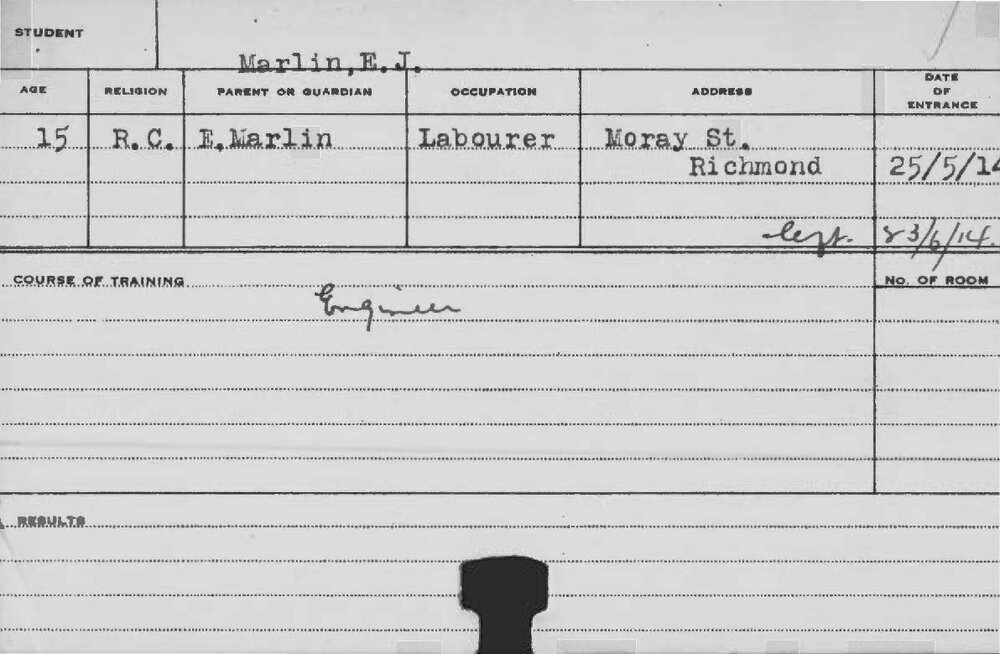 STUDENT
Marlin, E.J.
AGE RELIGION PARENT OR GUARDIAN OCCUPATION ADDRESS DATE OF ENTRANCE
15 R.C. E.Marlin Labourer Moray St.
Richmond 25/5/14
left. 23/6/14.
COURSE OF TRAINING NO. OF ROOM
Engineer
RESULTS